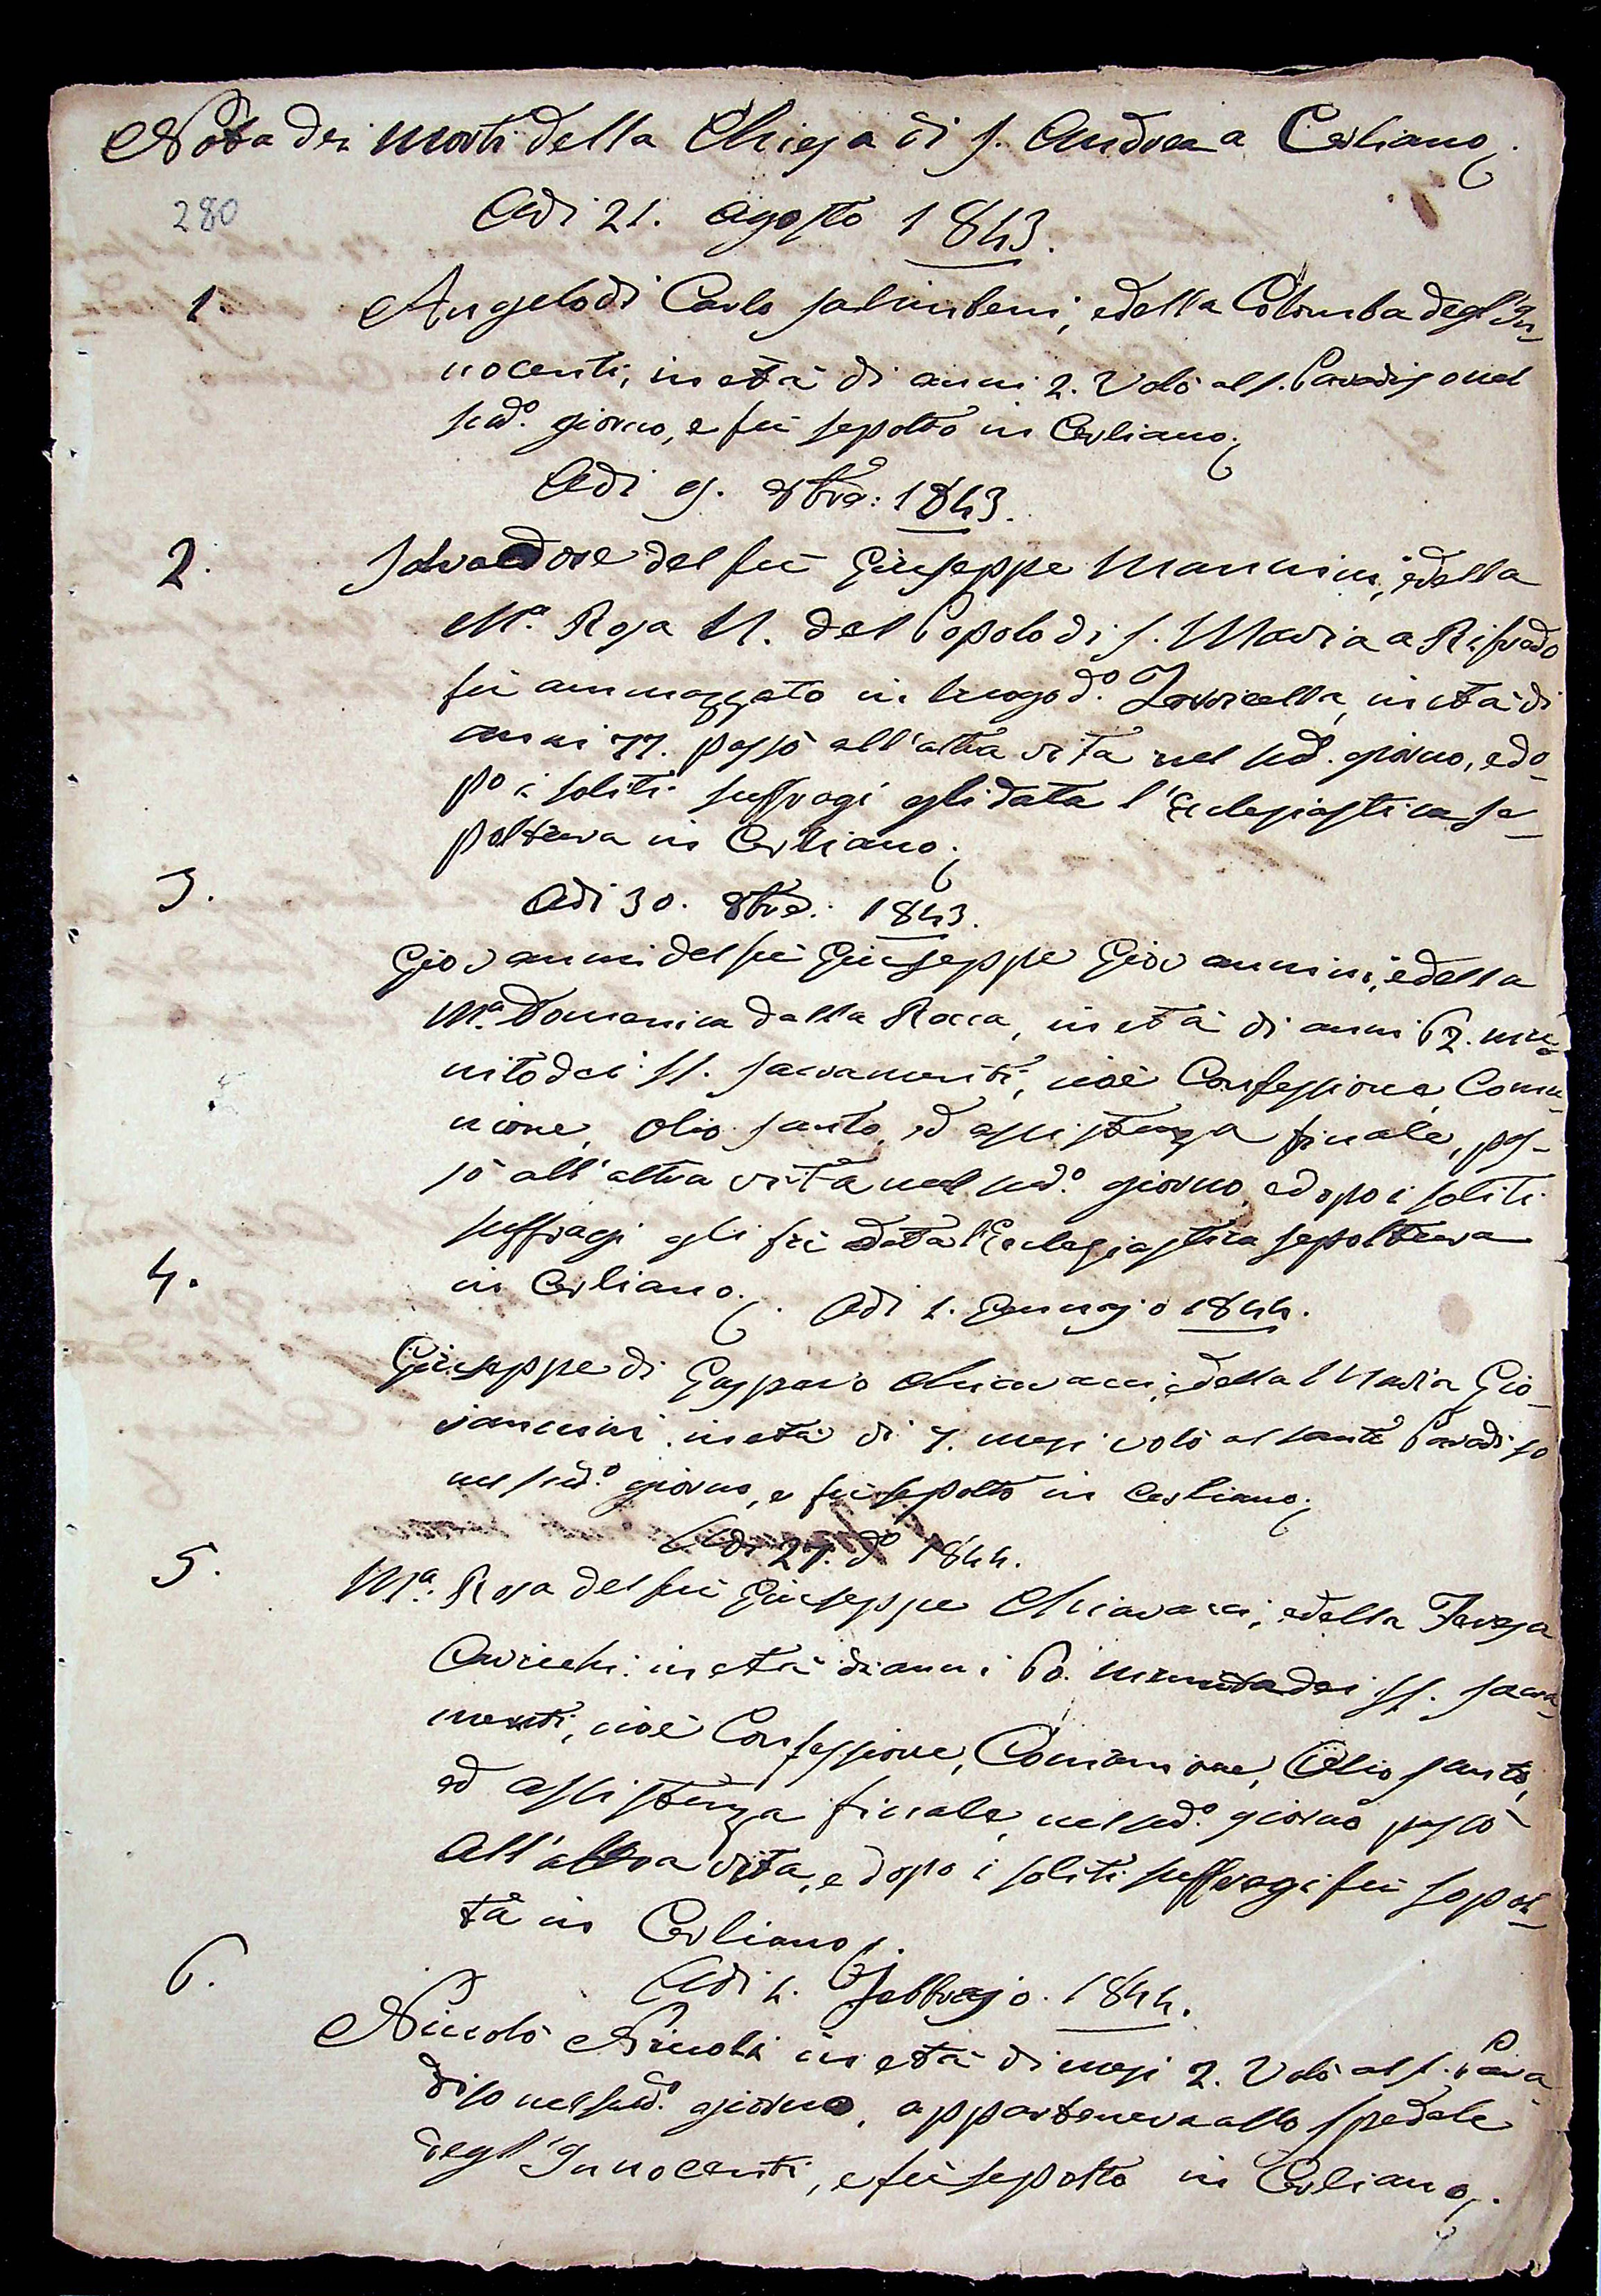 Nota dei Morti della Chiesa di S. Andrea a Cerliano.
280
Adì 21. Agosto 1843.
1. Angelo di Carlo Salimbeni, e della Colomba degl'In-
nocenti, in età di anni 2. Volò al S. Paradiso nel
sud.º giorno, e fù sepolto in Cerliano.
Adì 9. 8bre: 1843.
2. Salvadore del fù Giuseppe Mannini, e della
Mª. Rosa N. del Popolo di S. Maria a
fù ammazzato in luogo d.º in età di
anni 77. passò all'altra vita nel sud. giorno, e do-
po i soliti suffragi gli data l'Eclesiastica se-
poltura in Cerliano.
3. Adì 30. 8bre: 1843.
Giovanni del fù Giuseppe Giovannini, e della
Mª. Domenica dalla Rocca, in età di anni 62. mu-
nito dei SS. Sacramenti, cioè Confessione, Comu-
nione, Olio Santo, ed assistenza finale, pas-
sò all'altra vita nel sud.º giorno, e dopo i soliti
suffragi gli fù data l'Eclesiastica sepoltura
in Cerliano.
4. Adì 1. Gennajo 1844.
Giuseppe di Gasparo Chiavacci, e della Maria Gio-
vannini, in età di 7. mesi volò al santo Paradiso
nel sud.º giorno, e fù sepolto in Cerliano.
Adì 27. dº 1844.
5. Mª. Rosa del fù Giuseppe Chiavacci, e della Teresa
in età di anni 60. munita dei SS. Sacra-
menti, cioè Confessione, Comunione, Olio Santo,
ed assistenza finale, nel sud.º giorno passò
all'altra vita, e dopo i soliti suffragi fù sepol-
ta in Cerliano.
6. Adì 4. Febbrajo. 1844.
Niccolò Nicoli in età di mesi 2. Volò al S. Para-
diso nel sud.º giorno, apparteneva allo spedale
degl'Innocenti, e fù sepolto in Cerliano.